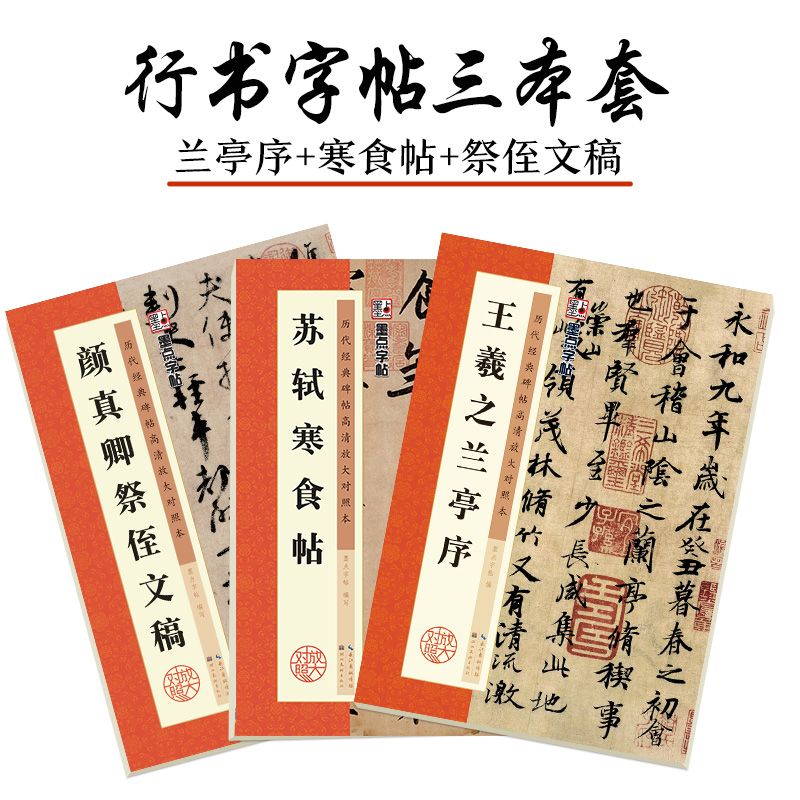 行书字帖三本套
兰亭序+寒食帖+祭侄文稿
墨点字帖
历代经典碑帖高清放大对照本
颜真卿祭侄文稿
墨点字帖 编写
放大对照
长江出版传媒
湖北美术出版社
墨点字帖
历代经典碑帖高清放大对照本
苏轼寒食帖
墨点字帖 编写
放大对照
长江出版传媒
湖北美术出版社
墨点字帖
历代经典碑帖高清放大对照本
王羲之兰亭序
墨点字帖 编
放大对照
长江出版传媒
湖北美术出版社
永和九年歲在癸丑暮春之初會
于會稽山陰之蘭亭脩稧事
也群賢畢至少長咸集此地
崇山
領茂林脩竹又有清流激